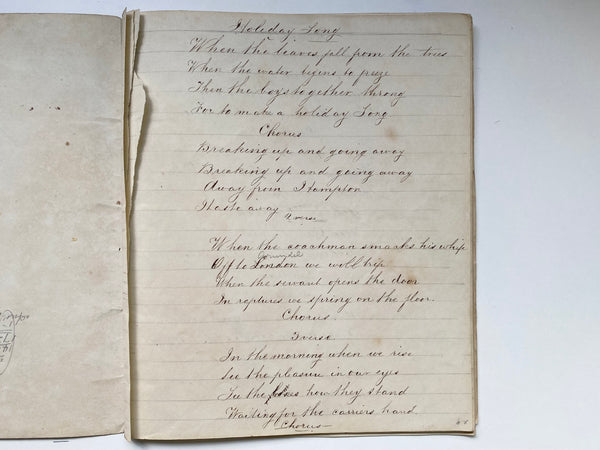 Holiday Song
When the leaves fall from the trees
When the water begins to freeze
Then the boys together throng
For to make a holiday Song.
Chorus
Breaking up and going away
Breaking up and going away
Away from Hampton
Haste away
2 verse
When the coachman smacks his whip
Off to London we will trip
When the servant opens the door
In raptures we spring on the floor.
Chorus
3 verse
In the morning when we rise
See the pleasure in our eyes
See the how they stand
Waiting for the carriers hand
Chorus